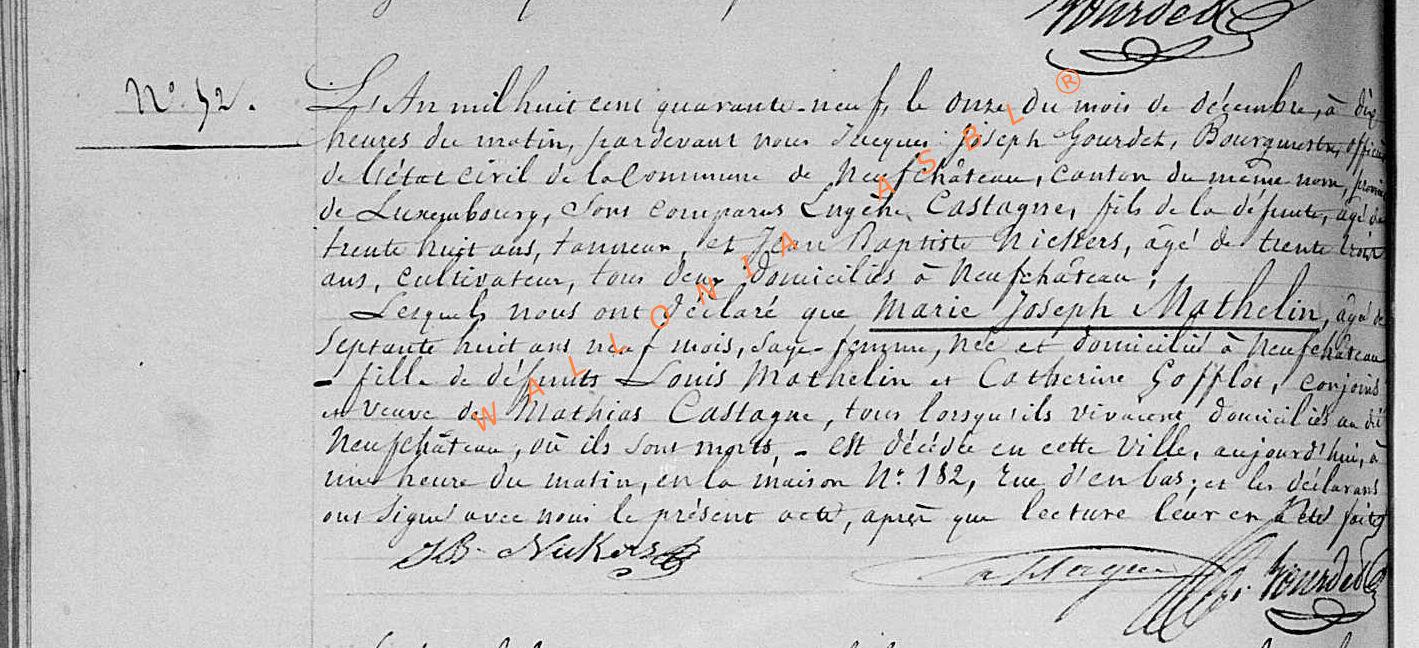 Gourdet
N° 52.
L'An mil huit cent quarante-neuf, le onze du mois de décembre, à dix
heures du matin, pardevant nous Jacques Joseph Gourdet, Bourgmestre, officier
de l'état civil de la Commune de Neufchâteau, canton du même nom, province
de Luxembourg, Sont comparus Eugène Castagne, fils de la défunte, âgé de
trente huit ans, tanneur, et Jean Baptiste Nickers, âgé de trente trois
ans, cultivateur, tous deux domiciliés à Neufchâteau;
Lesquels nous ont déclaré que Marie Joseph Mathelin, âgée de
Septante huit ans neuf mois, Sage-femme, née et domiciliée à Neufchâteau
- fille de défunts Louis Mathelin et Catherine Gofflot, conjoins
et veuve de Mathias Castagne, tous lorsqu'ils vivaient domiciliés au dit
Neufchâteau, où ils sont morts, - est décédée en cette Ville, aujourd'hui, à
une heure du matin, en la maison N° 182, rue d'en bas; et les déclarans
ont Signé avec nous le présent acte, après que lecture leur en a été faite
JB. Nickers
Castagne
Gourdet
WALLONIA ASBL ®